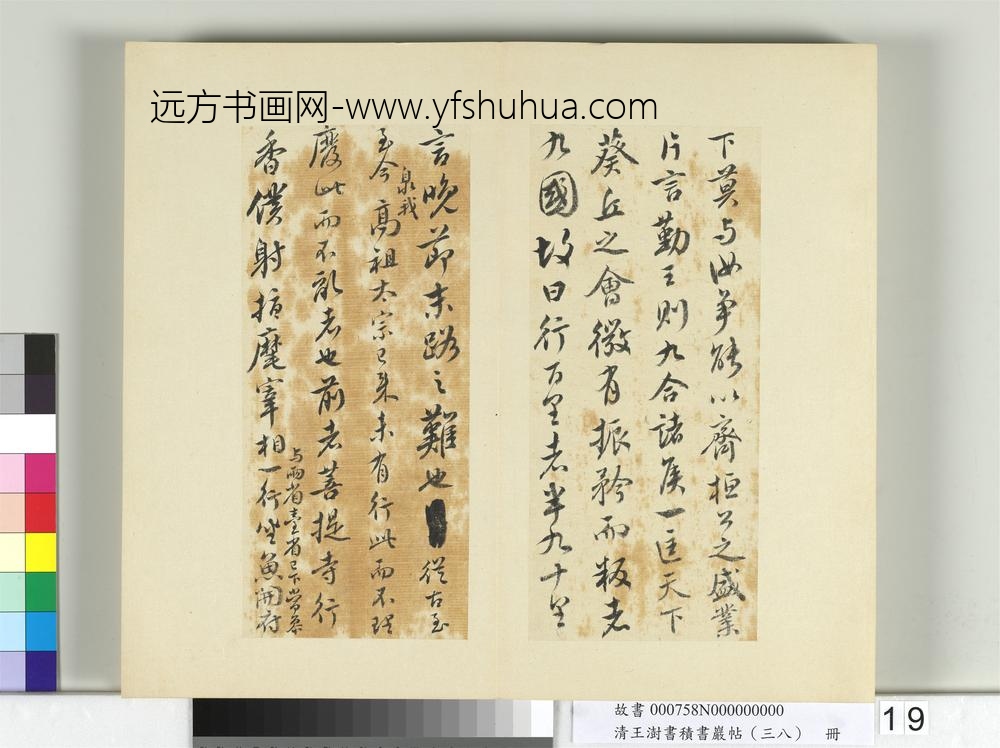 远方书画网-www.yfshuhua.com
下莫与汝争能以齊桓公之盛業
片言勤王则九合諸侯一匡天下
葵丘之會微有振矜而叛者
九國故曰行百里者半九十里
言晚節末路之難也從古至
泉我
至今高祖太宗已来未有行此而不理
廢此而不亂者也前者菩提寺行
香僕射指麾宰相
与兩省臺省已下常参
一行坐魚開府
故書 000758N000000000
清王澍書積書巖帖（三八） 冊
19